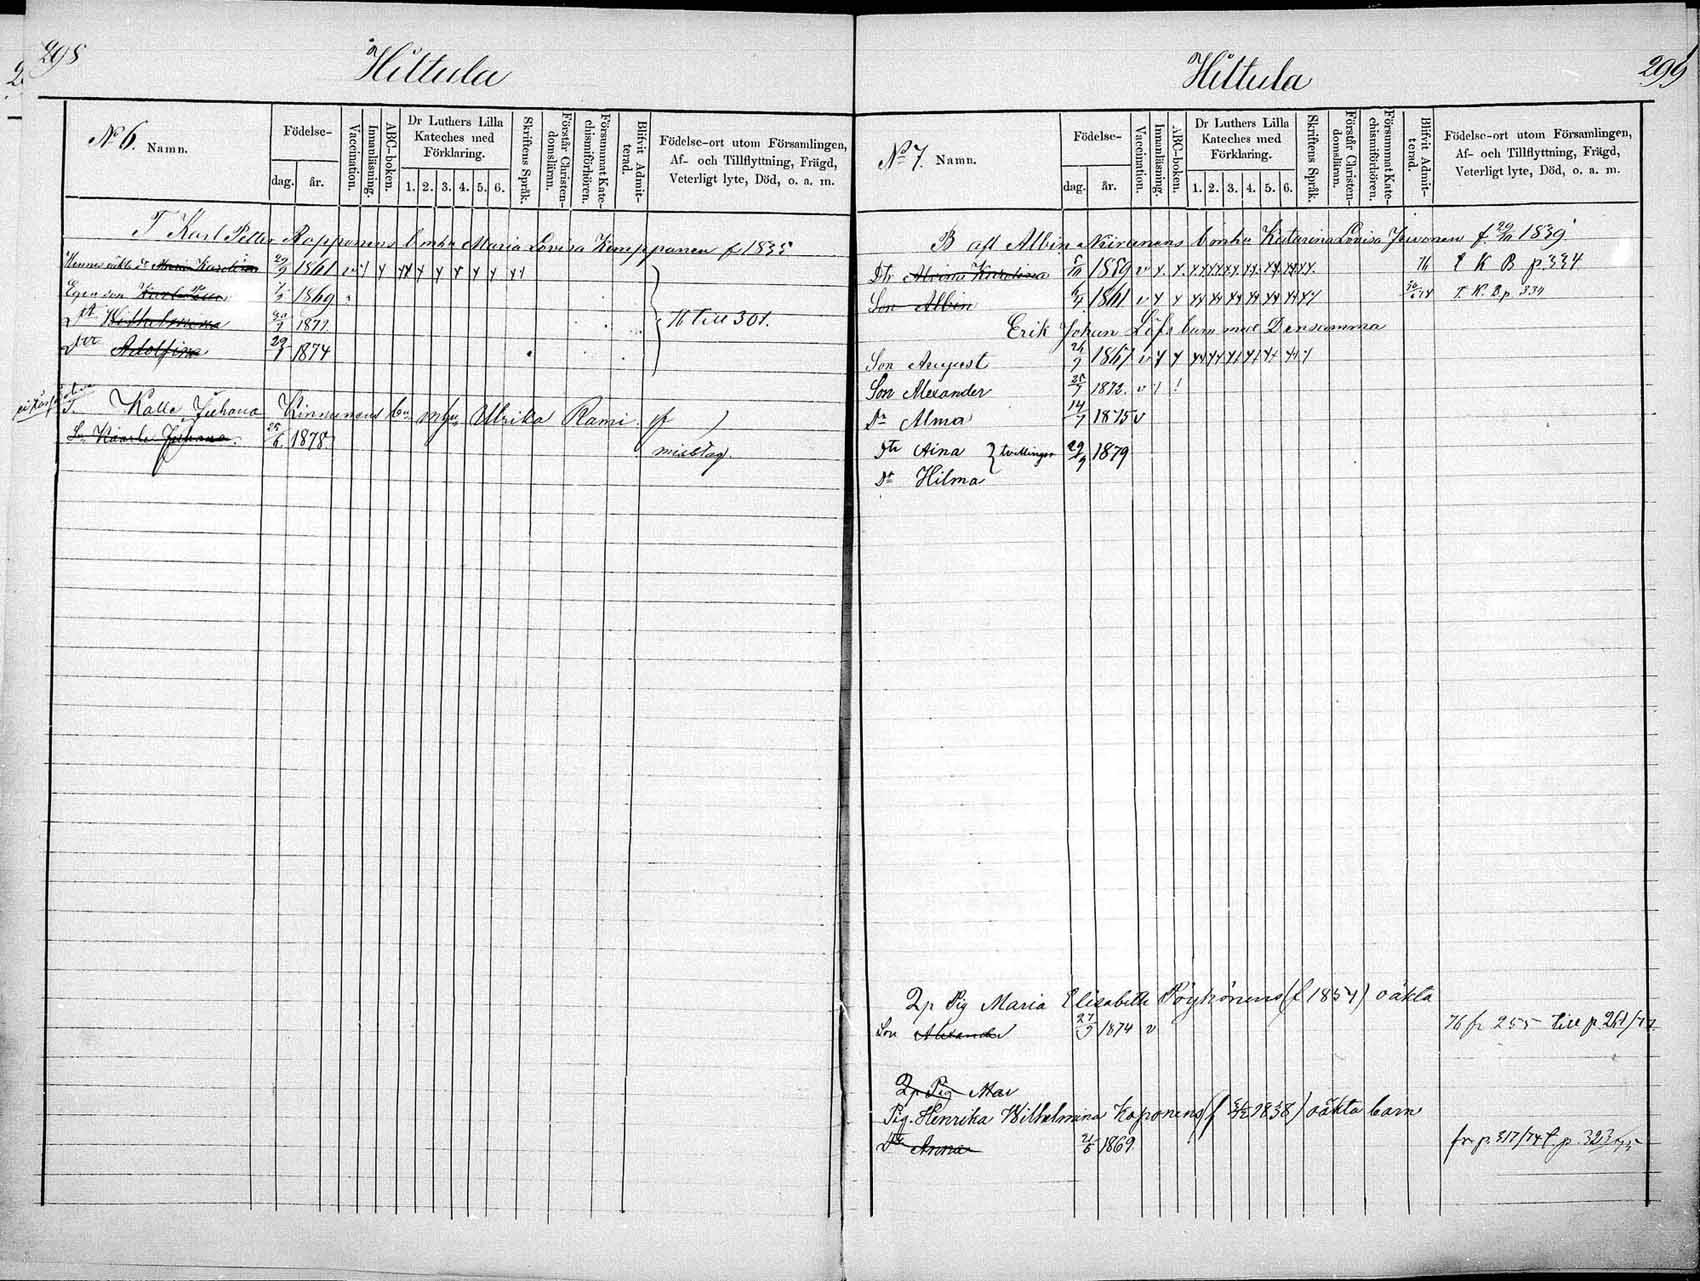 298
Hiltula
Nº 6. Namn.
Födelse-
dag. år.
Vaccination.
Innanläsning.
ABC-boken.
Dr Luthers Lilla
Kateches med
Förklaring.
1. 2. 3. 4. 5. 6.
Skriftens Språk.
Förstår Christen-
domsläran.
Försummat Kate-
chismiförhören.
Blifvit Admit-
terad.
Födelse-ort utom Församlingen,
Af- och Tillflyttning, Frägd,
Veterligt lyte, Död, o. a. m.
T Karl Petter Ropponens b m hu Maria Lovisa Kemppanen f 1835
Karolina 29/9 1861
Egen son Karl 1869
Dtr Wilhelmina 1871
Dtr Adolfina 29/1 1874
76 till 301.
T. Kalle Juhana Kinnunens bn m hu Ulrika Rami
Sn Kaarle Juhana 25/6 1878
misstag.
299
Hiltula
Nº 7. Namn.
Födelse-
dag. år.
Vaccination.
Innanläsning.
ABC-boken.
Dr Luthers Lilla
Kateches med
Förklaring.
1. 2. 3. 4. 5. 6.
Skriftens Språk.
Förstår Christen-
domsläran.
Försummat Kate-
chismiförhören.
Blifvit Admit-
terad.
Födelse-ort utom Församlingen,
Af- och Tillflyttning, Frägd,
Veterligt lyte, Död, o. a. m.
B afl Albin Neiranens b m hu Katarina Lovisa f. 1839
Dtr Karolina 5/10 1859 76 T K B p 334
Son Albin 1861 T. K. B. p 334
Erik Johan Löfs barn med Densamma
Son August 26/9 1867
Son Alexander 25/7 1872
Dr Alma 14/7 1875
Dtr Aina } tvillingar 29/9 1879
Dr Hilma
Qp Pig Maria Elisabeth Pöyhönens (f 1854) oäkta
Son Alexander 27/9 1874 76 fr 255 till p 261/77
Qp Pig Mar
Pig. Henrika Wilhelmina Kaponens (f 1838) oäkta barn
Dtr Anna 21/6 1869 fr p 317/74 t. p. 323/75